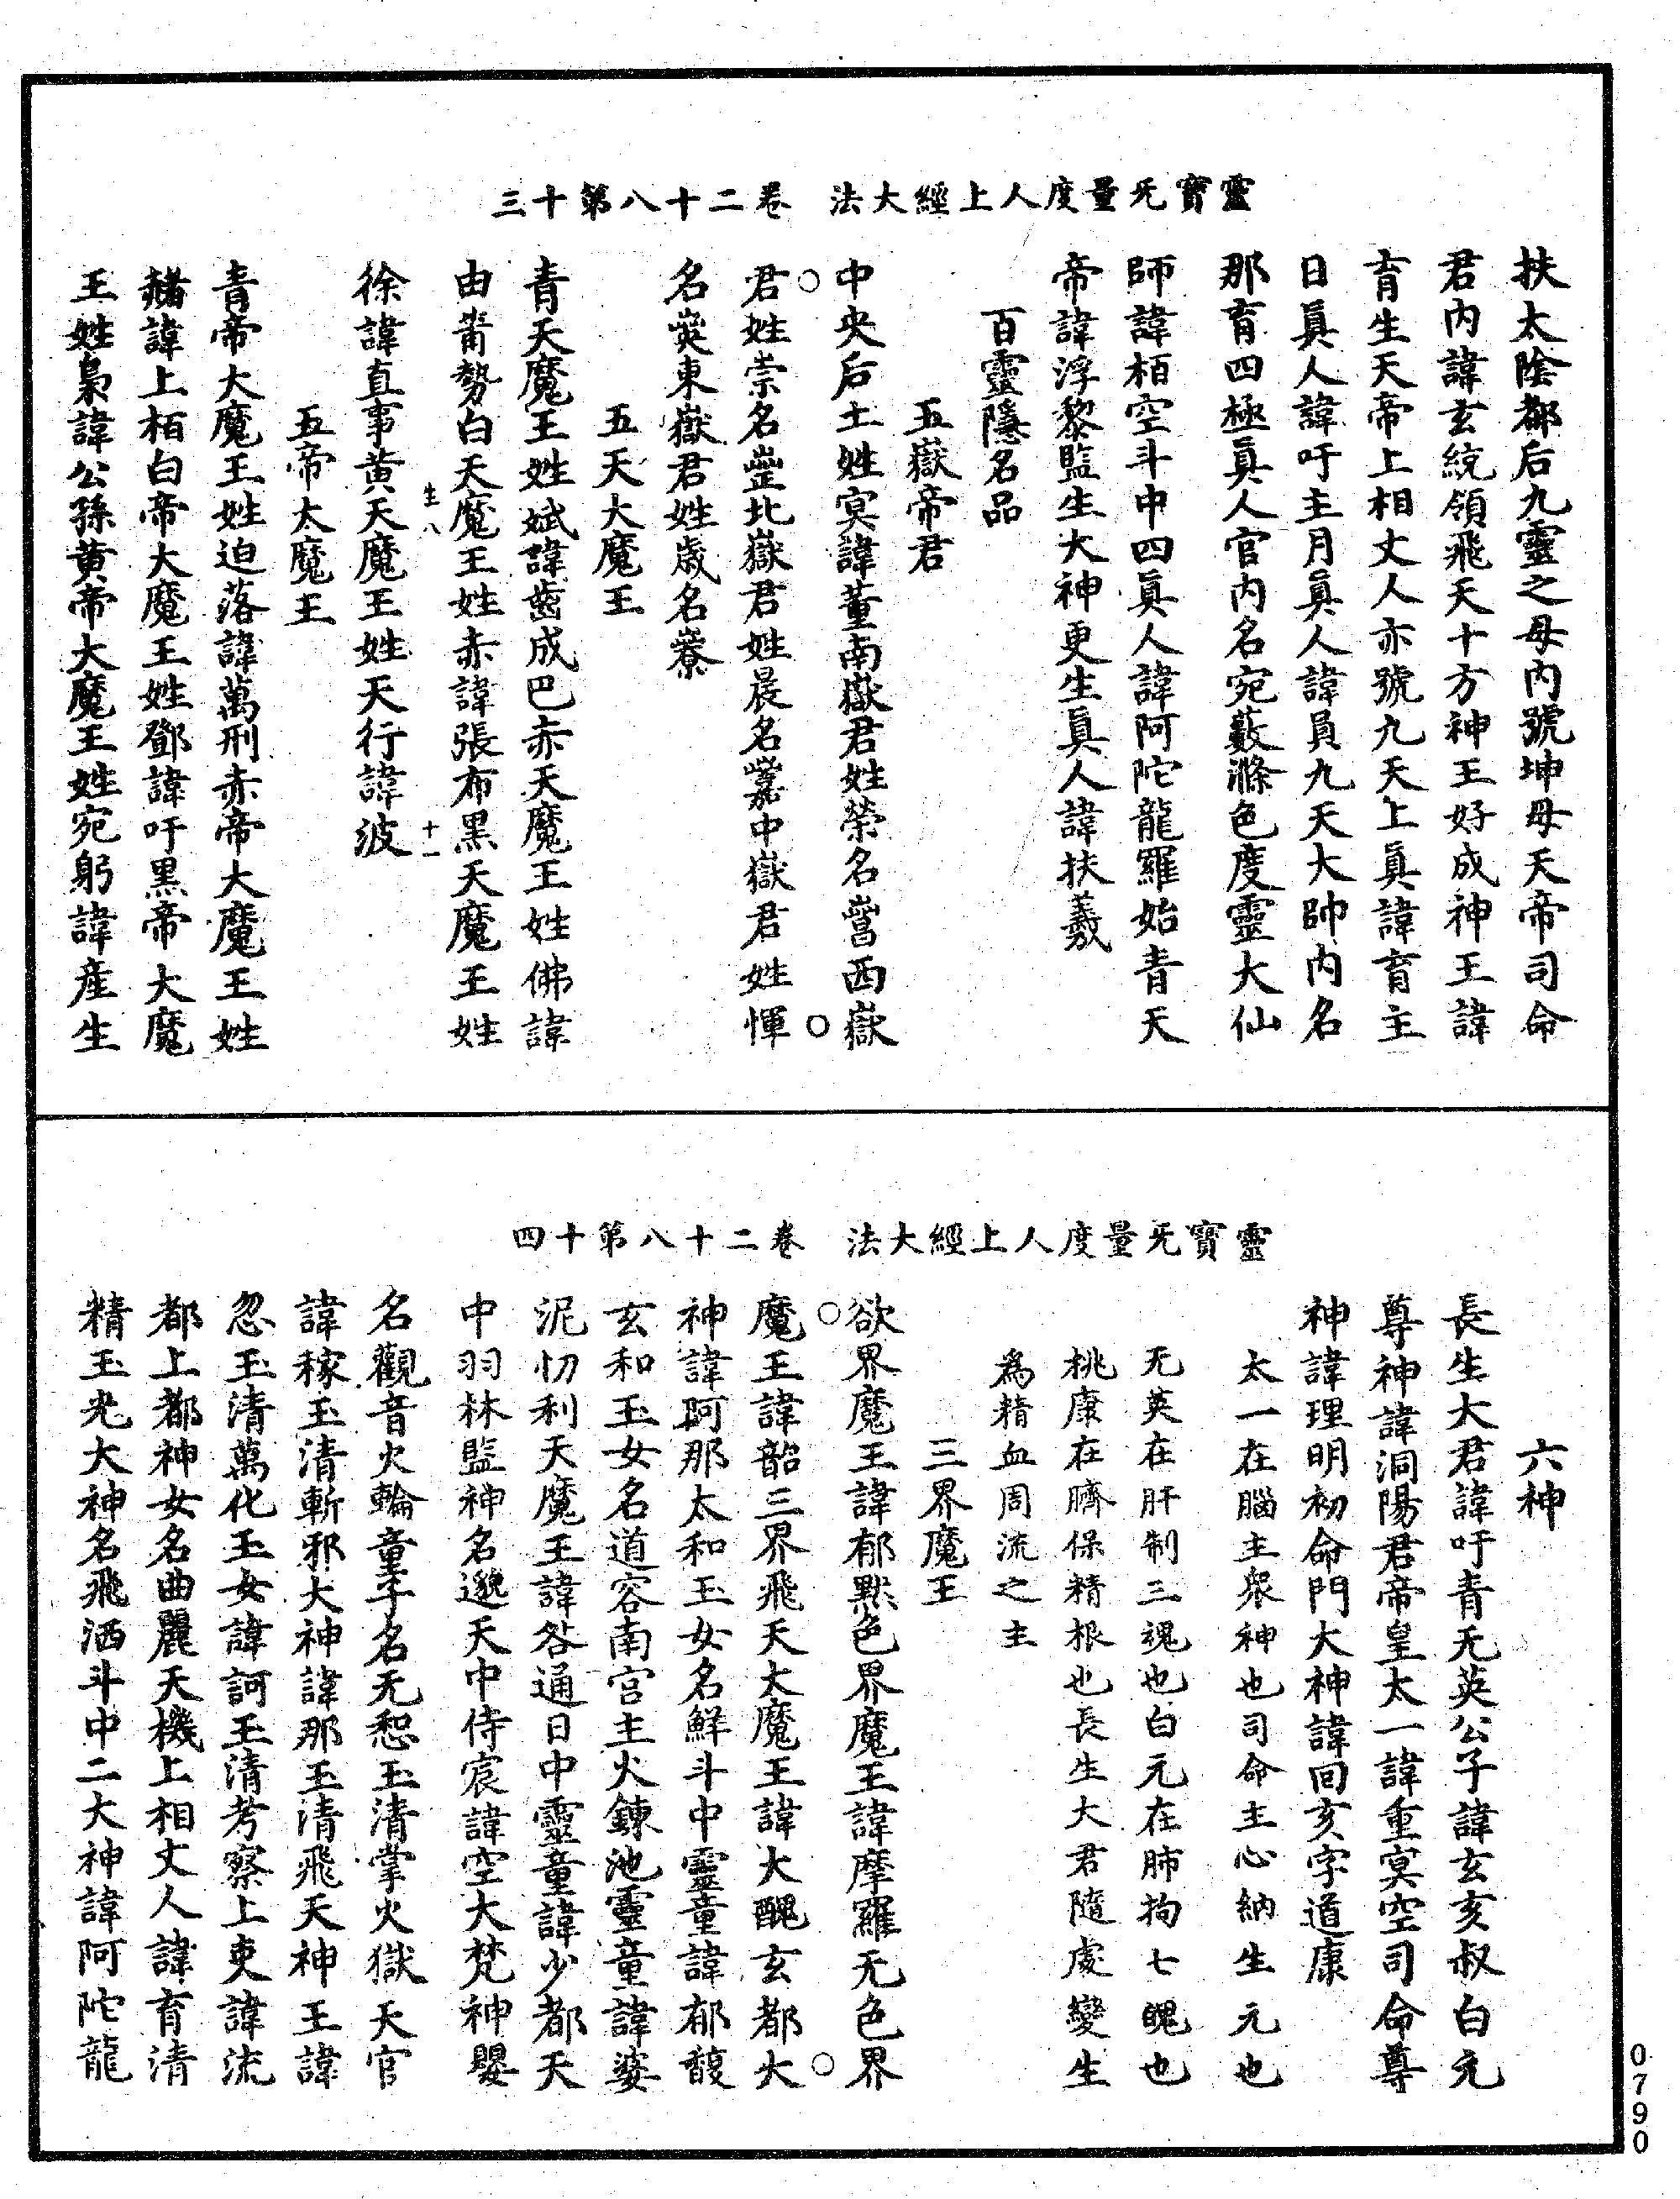 靈寶无量度人上經大法　卷二十八第十三
扶太陰都后九靈之母內號坤母天帝司命
君內諱玄統領飛天十方神王好成神王諱
育生天帝上相丈人亦號九天上眞諱育主
日眞人諱吁主月眞人諱員九天大帥內名
那育四極眞人官內名宛藪滌色度靈大仙
師諱栢空斗中四眞人諱阿陀龍羅始青天
帝諱浮黎監生大神更生眞人諱扶羲
百靈隱名品
五嶽帝君
中央后土姓㝠諱董南嶽君姓榮名嵤西嶽
君姓崇名𡹔北嶽君姓晨名㠔中嶽君姓惲
名䔄東嶽君姓歲名嶚
五天大魔王
青天魔王姓斌諱齒成巴赤天魔王姓佛諱
由莆勢白天魔王姓赤諱張布黑天魔王姓
徐諱直事黄天魔王姓天行諱波
生八　十一
五帝大魔王
青帝大魔王姓迫落諱萬刑赤帝大魔王姓
赭諱上栢白帝大魔王姓鄧諱吁黑帝大魔
王姓梟諱公孫黄帝大魔王姓宛躬諱産生
靈寶无量度人上經大法　卷二十八第十四
六神
長生大君諱吁青无英公子諱玄亥叔白元
尊神諱洞陽君帝皇太一諱重㝠空司命尊
神諱理明初命門大神諱回亥字道康
太一在腦主衆神也司命主心納生元也
无英在肝制三魂也白元在肺拘七魄也
桃康在臍保精根也長生大君隨處變生
爲精血周流之主
三界魔王
欲界魔王諱郁默色界魔王諱摩羅无色界
魔王諱韶三界飛天大魔王諱大醜玄都大
神諱阿那太和玉女名鮮斗中靈童諱郁馥
玄和玉女名道容南宮主火鍊池靈童諱婆
泥忉利天魔王諱咎通日中靈童諱少都天
中羽林監神名邈天中侍宸諱空大梵神嬰
名觀音火輪童子名无惒玉清掌火獄天官
諱稼玉清斬邪大神諱那玉清飛天神王諱
忽玉清萬化玉女諱訶玉清考察上吏諱流
都上都神女名曲麗天機上相丈人諱育清
精玉光大神名飛洒斗中二大神諱阿陀龍
0790